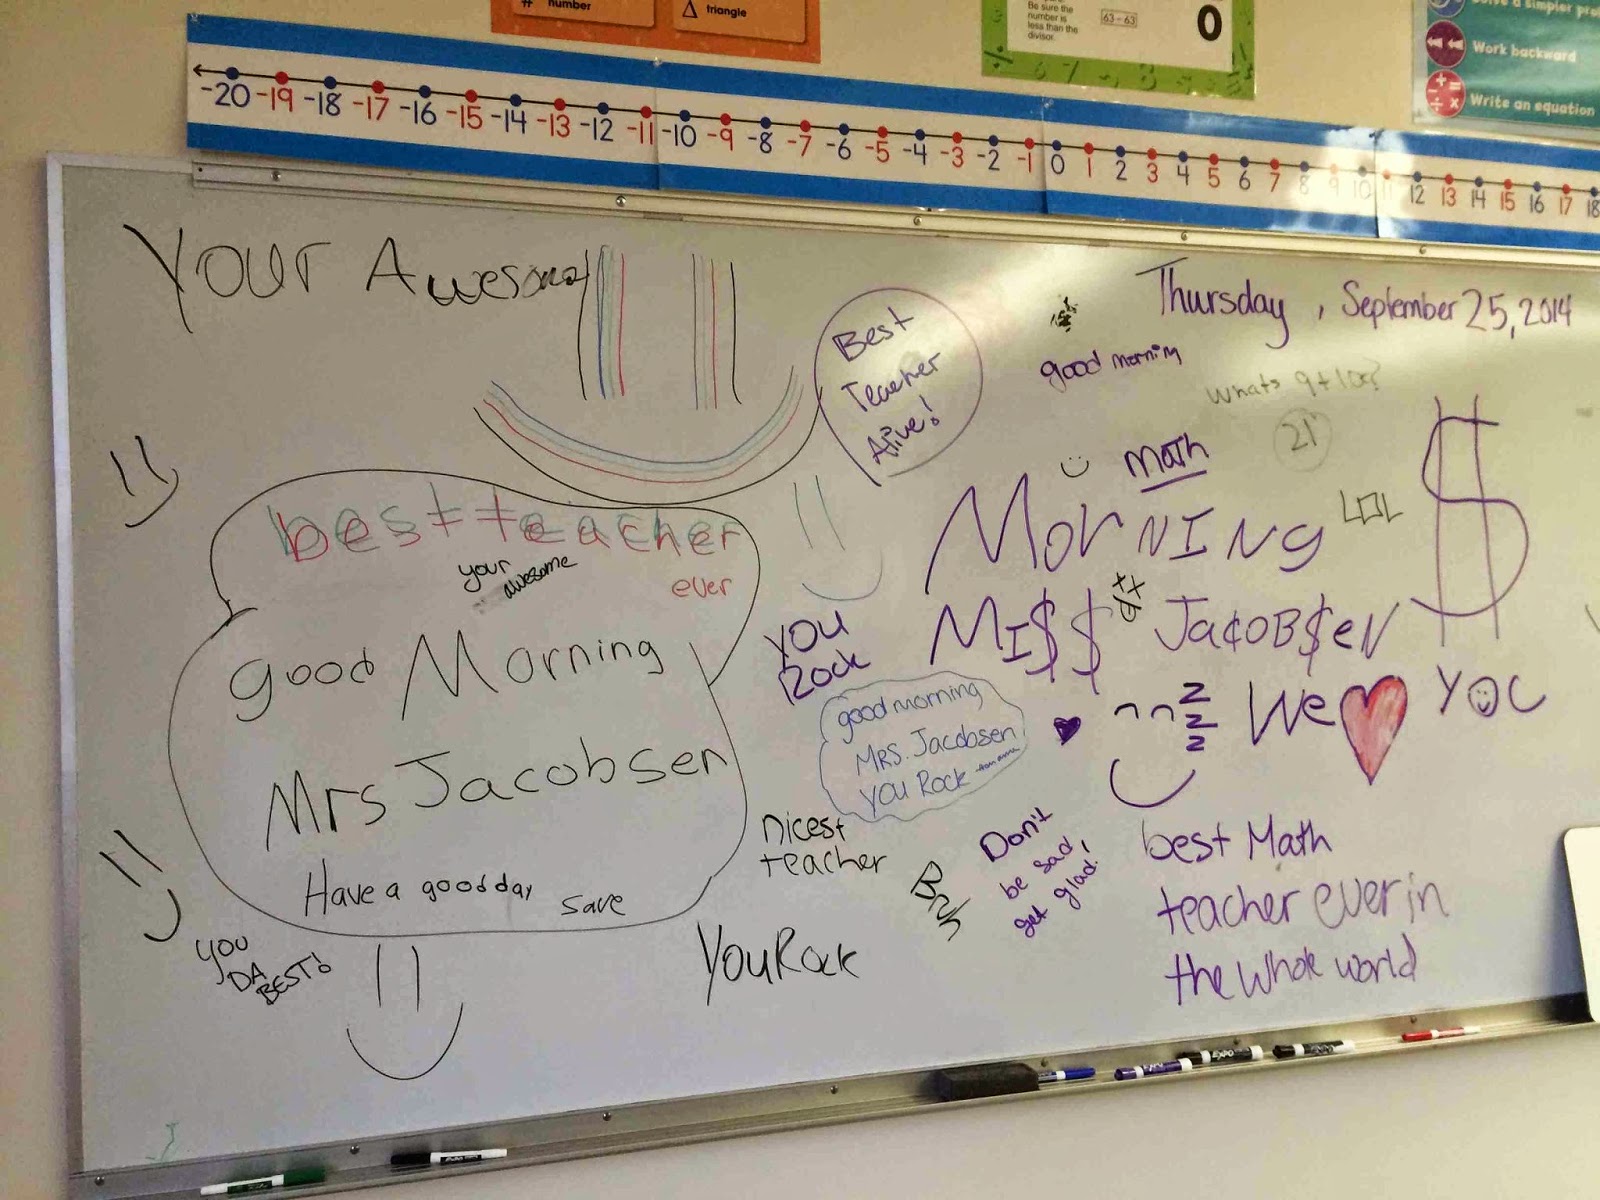 # number
Δ triangle
Be sure the
number is
less than the
divisor.
63 - 63
0
Work backward
Write an equation
-20 -19 -18 -17 -16 -15 -14 -13 -12 -11 -10 -9 -8 -7 -6 -5 -4 -3 -2 -1 0 1 2 3 4 5 6 7 8 9 10 11 12 13 14 15 16 17 18
Your Awesome
Best
Teacher
Alive!
Thursday, September 25, 2014
good morning
whats 9+10?
21
math
Morning
LOL
$
MI$$ Ja¢OB$eN
best teacher
ever
your
awesome
good Morning
Mrs Jacobsen
Have a good day
save
You
Rock
good morning
Mrs. Jacobsen
You Rock
z
z
z
We ♥ YOU
nicest
teacher
Bruh
Don't
be sad,
get glad!
best Math
teacher ever in
the whole world
you
DA
BEST!
You Rock
EXPO